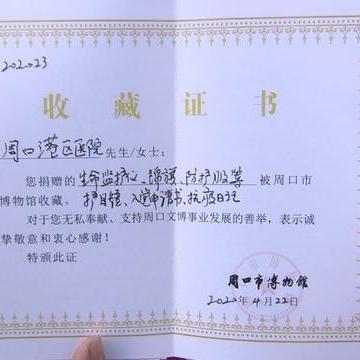 202023
收藏证书
周口港区医院先生/女士:
您捐赠的生命监护仪、锦旗、防护服等被周口市
博物馆收藏。护目镜、入党申请书、抗疫日记
对于您无私奉献、支持周口文博事业发展的善举,表示诚
挚敬意和衷心感谢!
特颁此证
周口市博物馆
2020年4月22日